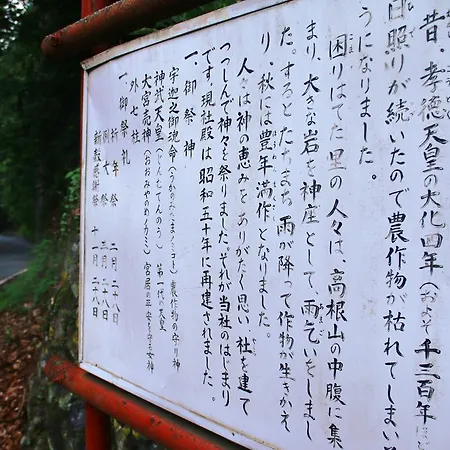 昔、孝徳天皇の大化四年(およそ千三百年
日照りが続いたので農作物が枯れてしまい
うになりました。
困りはてた里の人々は、高根山の中腹に集
まり、大きな岩を神座として、雨乞いをしまし
た。するとたちまち雨が降って作物が生きかえ
り、秋には豊年満作となりました。
人々は神の恵みとありがたく思い、社を建て
つつしんで神々を祭りました。それが当社のはじまり
です。現社殿は昭和五十年に再建されました。
一、御祭神
宇迦之御魂命(うかのみたまノミコト)農作物の守り神
神武天皇(じんむてんのう)第一代の天皇
大宮売神(おおみやのめノカミ)宮居の平安を守る女神
外七社
一、御祭礼
祈年祭 二月二十八日
例大祭 三月二十八日
新穀感謝祭 十一月二十八日